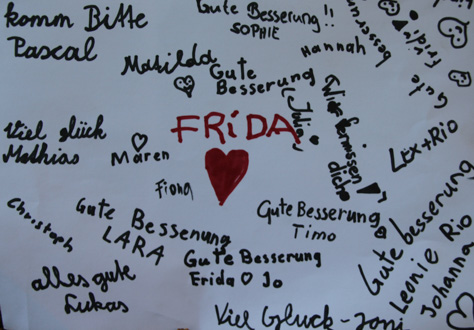 komm Bitte
Pascal
Gute Besserung!!
SOPHIE
Hannah
besserung
Frida
Gute
Matilda
Gute
Besserung
Julian
wir vermissen
dich
FRiDA
Lex+Rio
Viel glück
Mathias
Maren
Fiona
Christoph
Gute Bessenung
LARA
Gute Besserung
Timo
Gute Besserung
Erida Jo
alles gute
Lukas
Gute besserung
Leonie Rio
Johanna
Viel Gluck - Joni